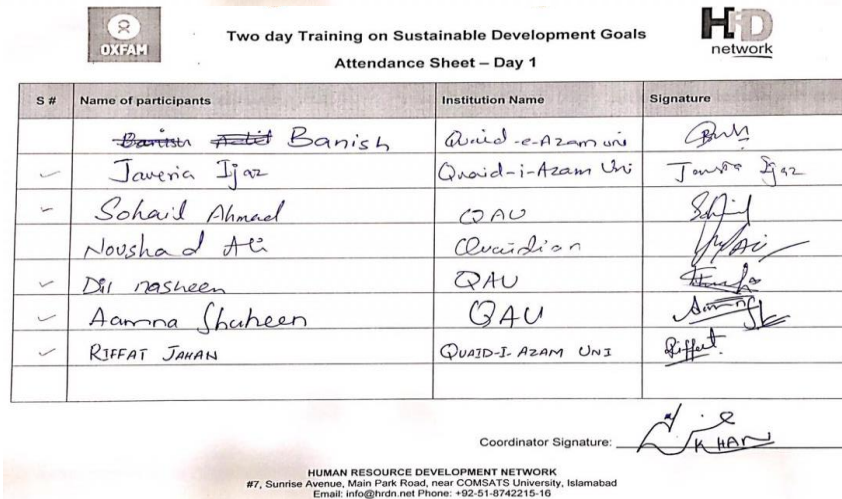 OXFAM
Two day Training on Sustainable Development Goals
HiD
network
Attendance Sheet – Day 1
S # Name of participants Institution Name Signature
Banish Quaid-e-Azam uni
Javeria Ijaz Quaid-i-Azam Uni Javeria Ijaz
Sohail Ahmad QAU
Noushad Ali Quaidian
Dil nasheen QAU
Aamna Shaheen QAU
RIFFAT JAHAN QUAID-I-AZAM UNI Riffat
Coordinator Signature: KHAN
HUMAN RESOURCE DEVELOPMENT NETWORK
#7, Sunrise Avenue, Main Park Road, near COMSATS University, Islamabad
Email: info@hrdn.net Phone: +92-51-8742215-16